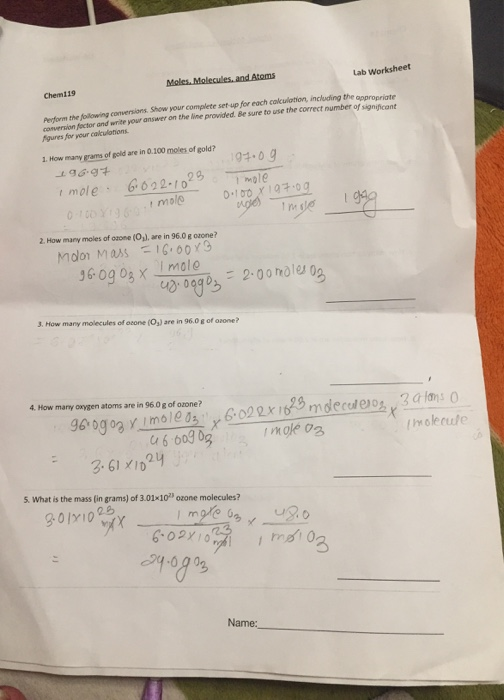 Chem119
Moles, Molecules, and Atoms
Lab Worksheet
Perform the following conversions. Show your complete set-up for each calculation, including the appropriate
conversion factor and write your answer on the line provided. Be sure to use the correct number of significant
figures for your calculations.
1. How many grams of gold are in 0.100 moles of gold?
196.97
1 mole
6.022·10²³
1 mole
197.0 g
1 mole
0.100 × 197.0g
moles 1 mole
2. How many moles of ozone (O₃), are in 96.0 g ozone?
Molar Mass = 16.00×3
96.0g O₃ × 1 mole = 2.00 moles O₃
3. How many molecules of ozone (O₃) are in 96.0 g of ozone?
4. How many oxygen atoms are in 96.0 g of ozone?
96.0g O₃ × 1 mole O₃ × 6.022×10²³ molecules O₃ × 3 atoms O
1 mole O₃ 1 molecule
= 3.61×10²⁴
5. What is the mass (in grams) of 3.01×10²³ ozone molecules?
3.01×10²³ × 1 mole O₃ × 48.0
6.02×10²³ 1 mol O₃
= 24.0g O₃
Name: